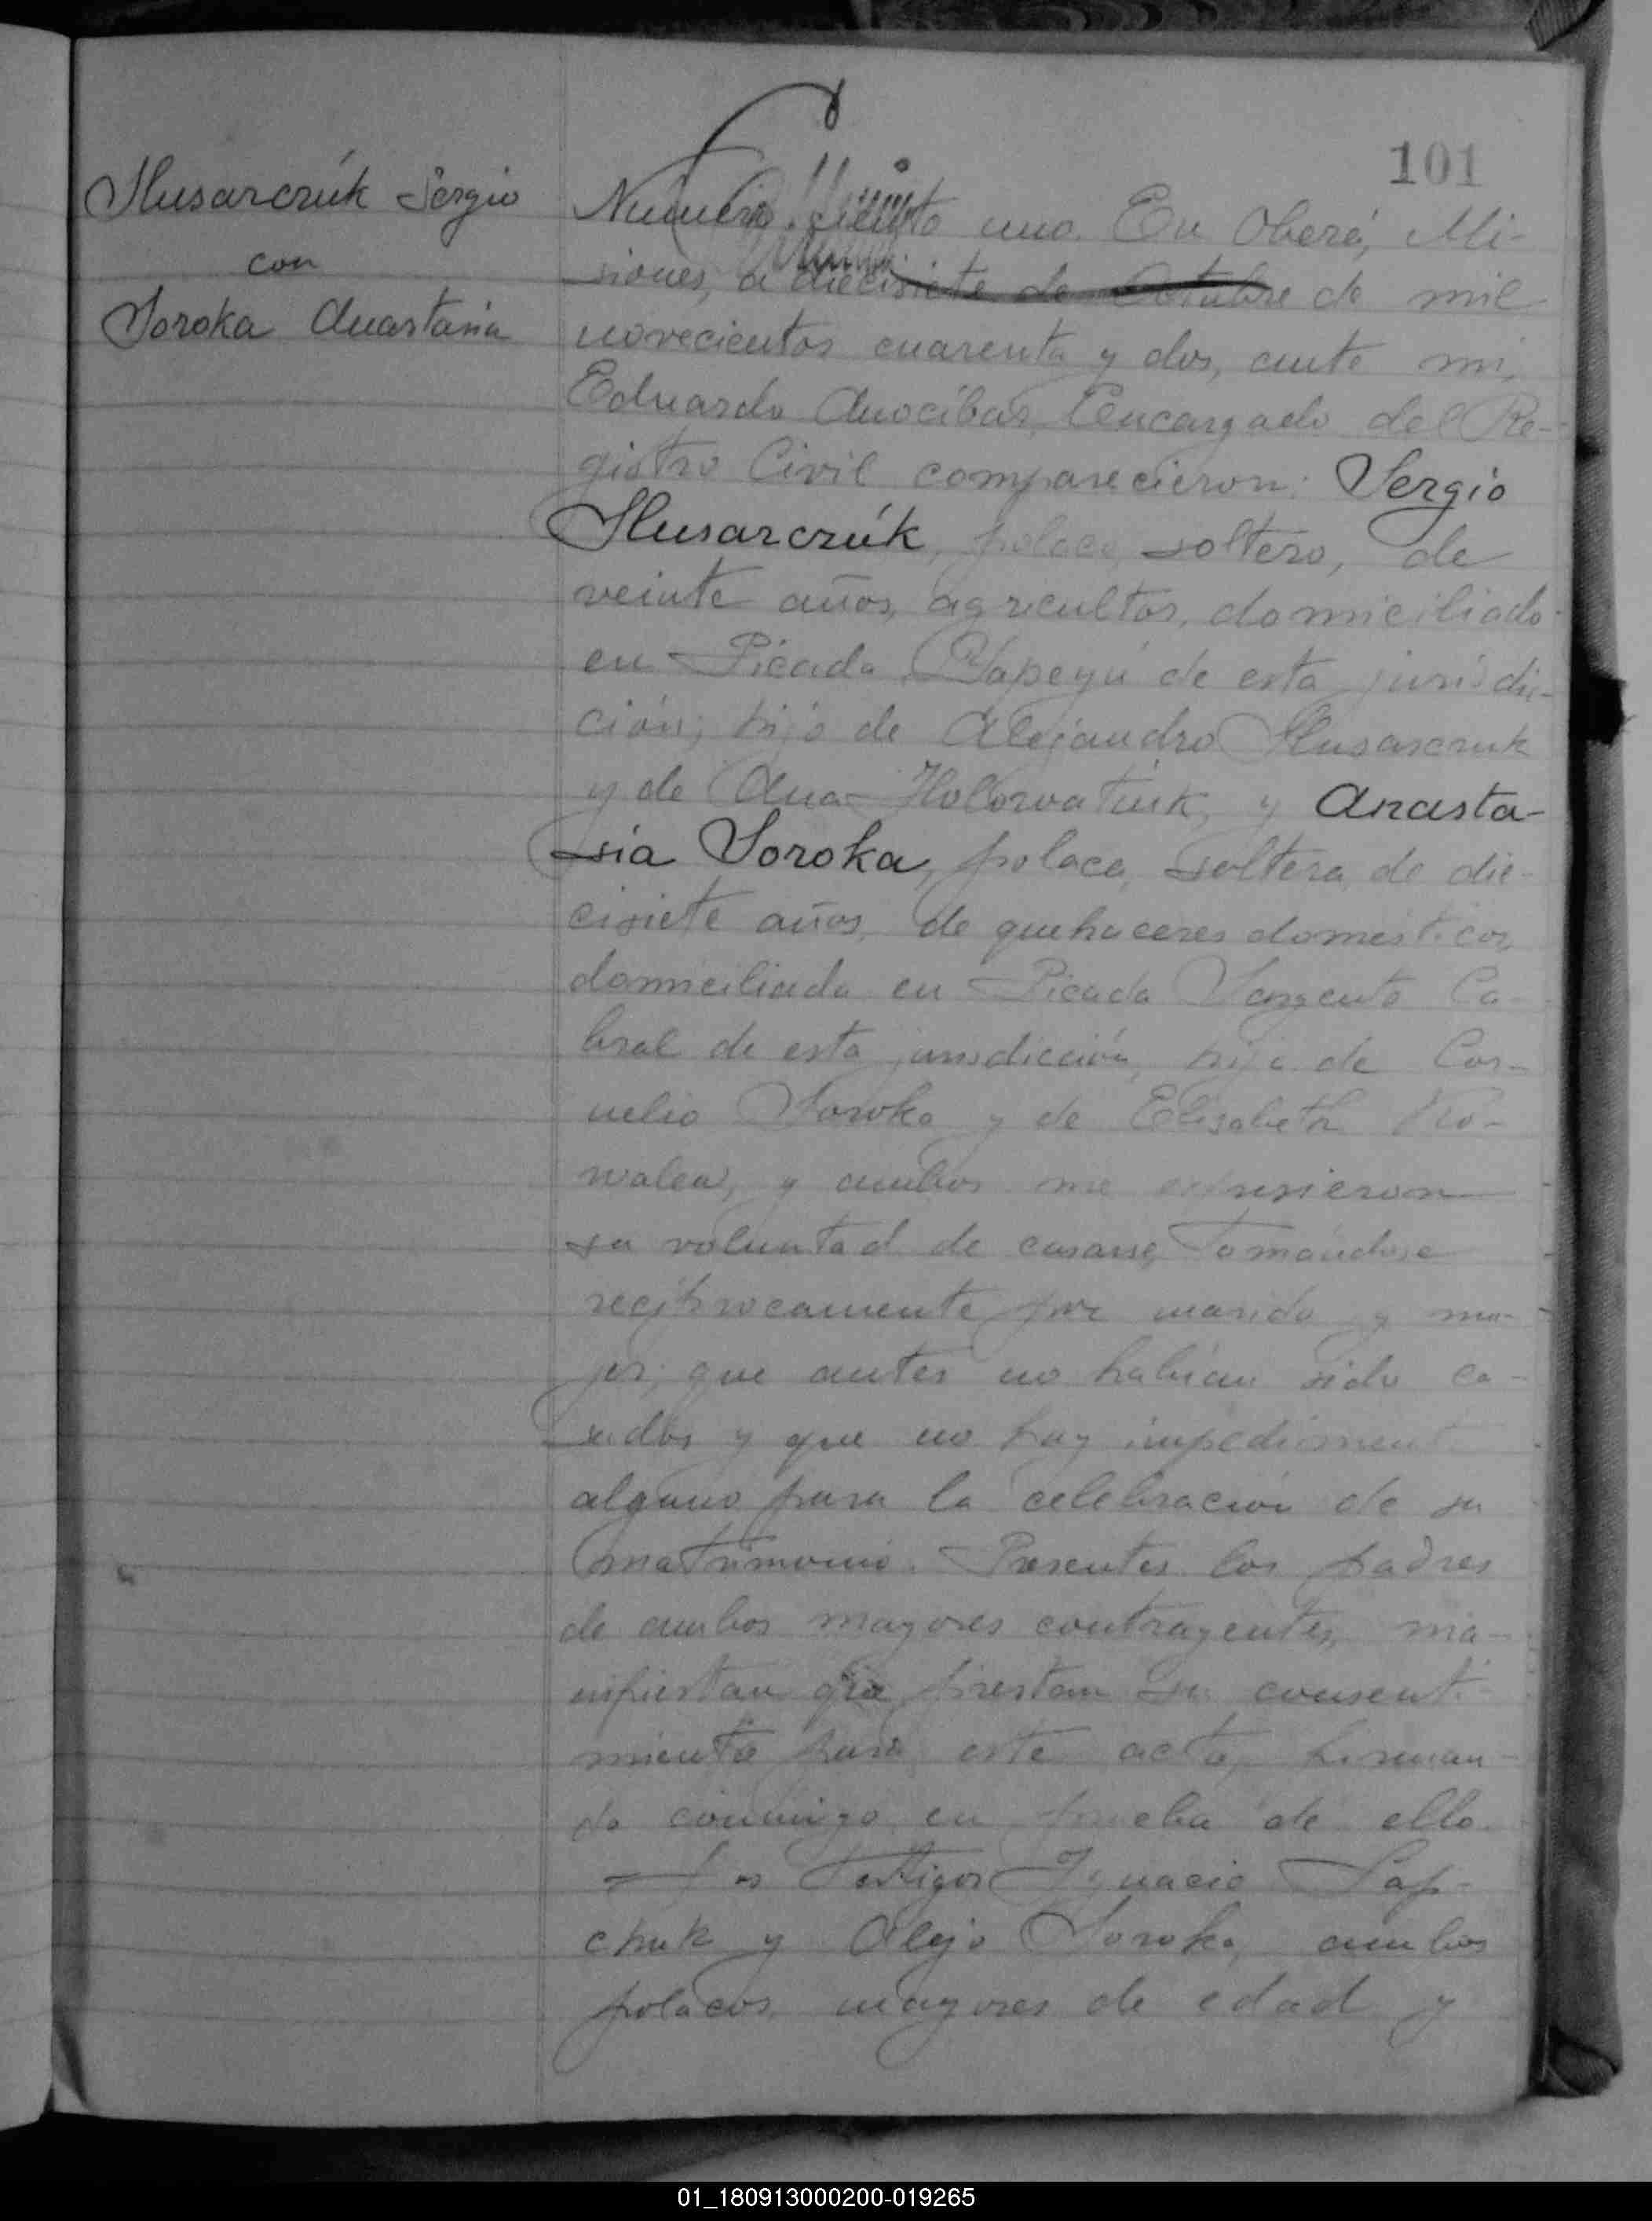 101
Slusarczúk Sergio
con
Soroka Anastasia
Número Ciento uno. En Oberá, Mi-
siones, a diecisiete de Octubre de mil
novecientos cuarenta y dos, ante mi,
Eduardo Anocibar, Encargado del Re-
gistro Civil comparecieron: Sergio
Slusarczúk, polaco, soltero, de
veinte años, agricultor, domiciliado
en Picada Yapeyú de esta jurisdic-
ción; hijo de Alejandro Slusarczuk
y de Ana Holowatiuk, y Anasta-
sia Soroka, polaca, soltera, de die-
cisiete años, de quehaceres domésticos,
domiciliada en Picada Sargento Ca-
bral de esta jurisdicción, hija de Cor-
nelio Soroka y de Elisabeth Ko-
walew, y ambos me expusieron
su voluntad de casarse, tomándose
recíprocamente por marido y mu-
jer; que antes no habían sido ca-
sados y que no hay impediment
alguno para la celebración de su
matrimonio. Presentes los padres
de ambos mayores contrayentes, ma-
nifiestan que prestan su consenti-
miento para este acto, firman-
do conmigo en prueba de ello.
Los Testigos Ignacio Sap-
chuk y Alejo Soroka, ambos
polacos, mayores de edad y
01_180913000200-019265